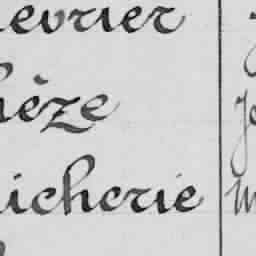 evrier
hèze
icherie